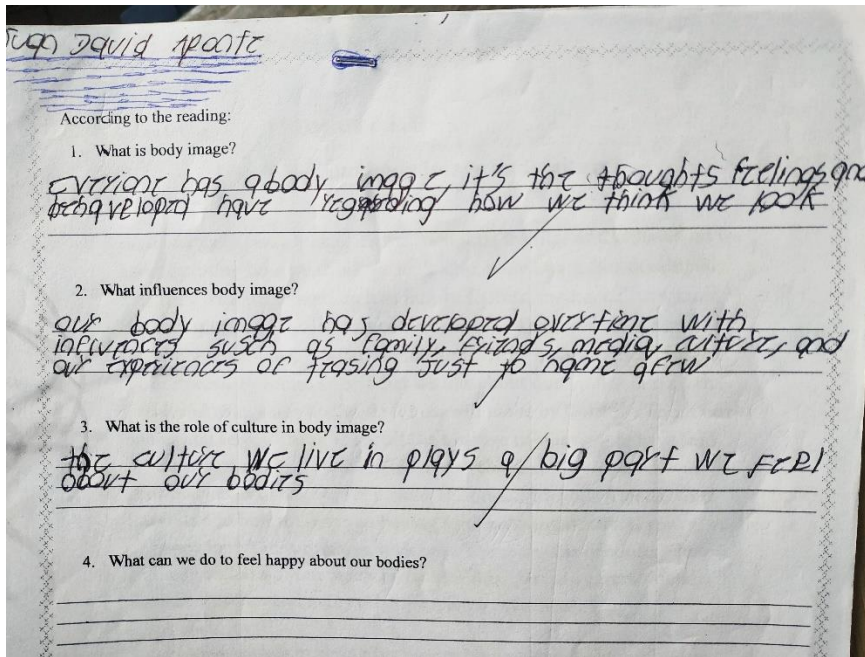 Juan David Aponte
According to the reading:
1. What is body image?
everyone has a body image, it's the thoughts feelings and
have regarding how we think we look
2. What influences body image?
our body image has developed overtime with
influences susch as family, friends, media, culture, and
our experiences of teasing just to name afew
3. What is the role of culture in body image?
the culture we live in plays a big part we feel
about our bodies
4. What can we do to feel happy about our bodies?